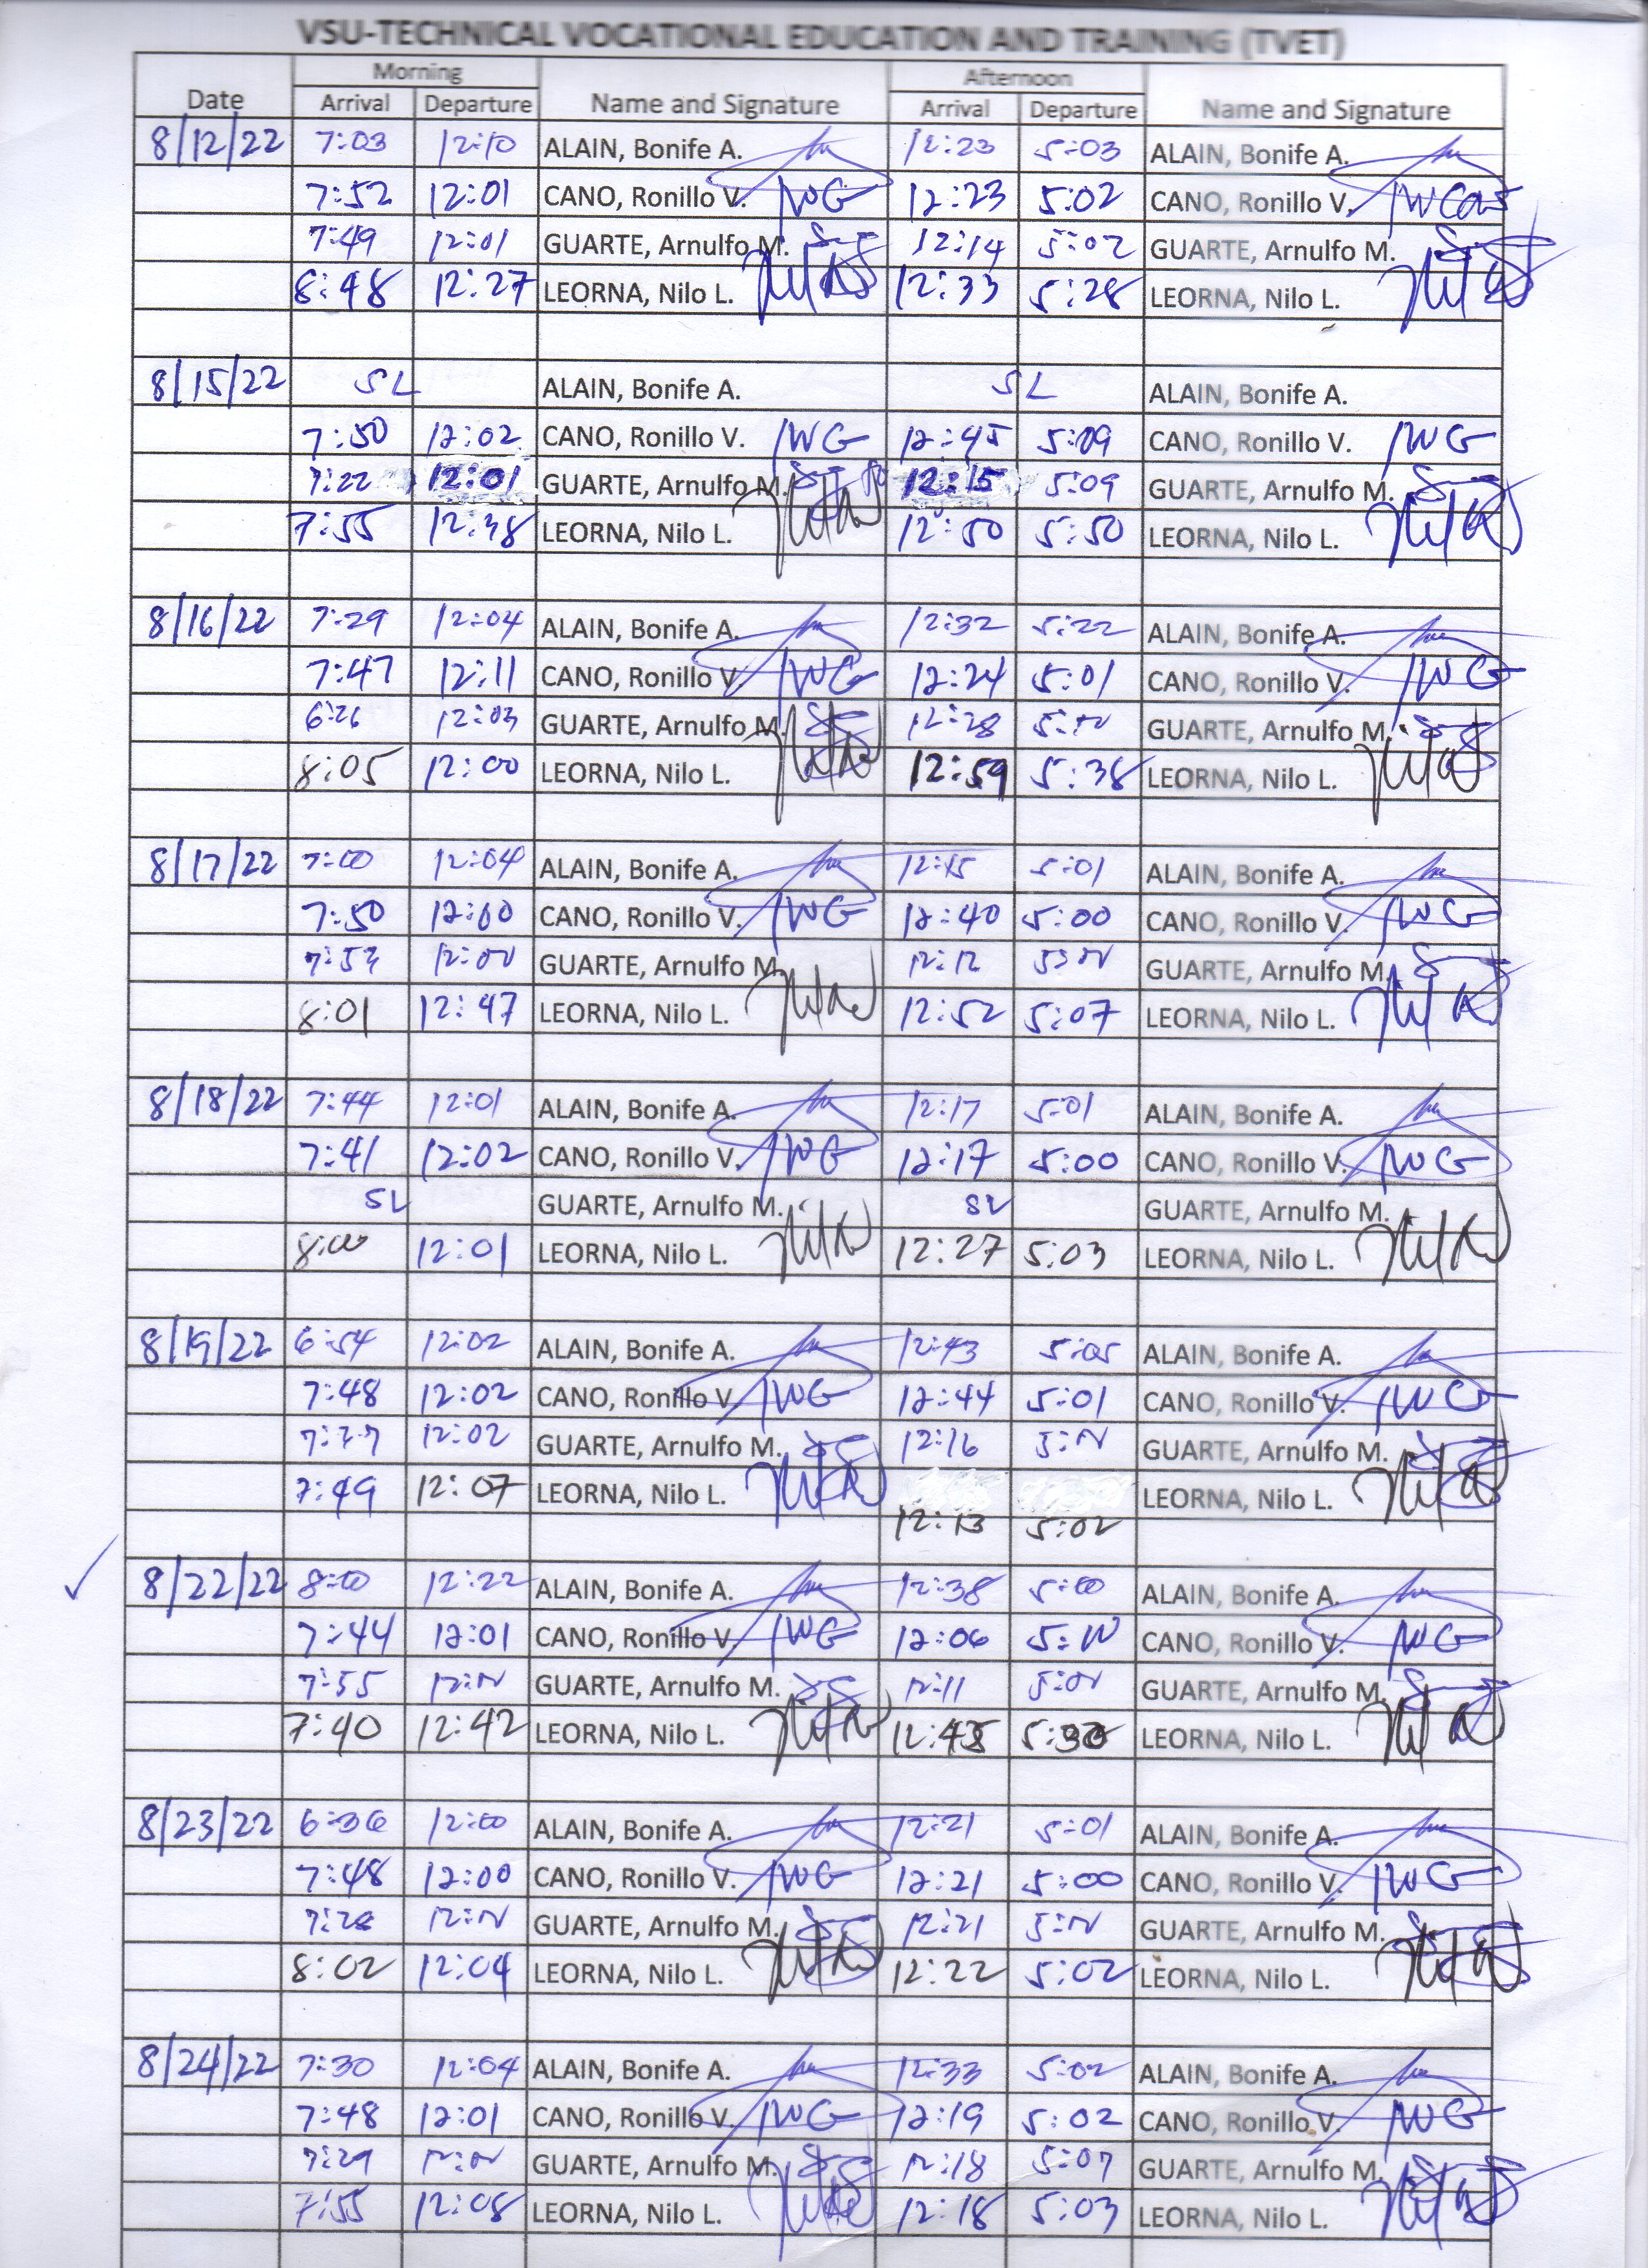 VSU-TECHNICAL VOCATIONAL EDUCATION AND TRAINING (TVET)
Morning Afternoon
Date Arrival Departure Name and Signature Arrival Departure Name and Signature
8/12/22 7:03 12:10 ALAIN, Bonife A. 12:23 5:03 ALAIN, Bonife A.
7:52 12:01 CANO, Ronillo V. 12:23 5:02 CANO, Ronillo V.
7:49 12:01 GUARTE, Arnulfo M. 12:14 5:02 GUARTE, Arnulfo M.
8:48 12:27 LEORNA, Nilo L. 12:33 5:28 LEORNA, Nilo L.
8/15/22 SL ALAIN, Bonife A. SL ALAIN, Bonife A.
7:50 12:02 CANO, Ronillo V. 12:45 5:09 CANO, Ronillo V.
7:22 12:01 GUARTE, Arnulfo M. 12:15 5:09 GUARTE, Arnulfo M.
7:55 12:38 LEORNA, Nilo L. 12:50 5:50 LEORNA, Nilo L.
8/16/22 7:29 12:04 ALAIN, Bonife A. 12:32 5:22 ALAIN, Bonife A.
7:47 12:11 CANO, Ronillo V. 12:24 5:01 CANO, Ronillo V.
6:26 12:03 GUARTE, Arnulfo M. 12:28 GUARTE, Arnulfo M.
8:05 12:00 LEORNA, Nilo L. 12:59 5:38 LEORNA, Nilo L.
8/17/22 7:00 12:04 ALAIN, Bonife A. 12:15 5:01 ALAIN, Bonife A.
7:50 12:00 CANO, Ronillo V. 12:40 5:00 CANO, Ronillo V.
7:53 12:00 GUARTE, Arnulfo M. 12:12 GUARTE, Arnulfo M.
8:01 12:47 LEORNA, Nilo L. 12:52 5:07 LEORNA, Nilo L.
8/18/22 7:44 12:01 ALAIN, Bonife A. 12:17 5:01 ALAIN, Bonife A.
7:41 12:02 CANO, Ronillo V. 12:17 5:00 CANO, Ronillo V.
SL GUARTE, Arnulfo M. SL GUARTE, Arnulfo M.
8:00 12:01 LEORNA, Nilo L. 12:27 5:03 LEORNA, Nilo L.
8/19/22 6:54 12:02 ALAIN, Bonife A. 12:43 5:05 ALAIN, Bonife A.
7:48 12:02 CANO, Ronillo V. 12:44 5:01 CANO, Ronillo V.
12:02 GUARTE, Arnulfo M. 12:16 GUARTE, Arnulfo M.
7:49 12:07 LEORNA, Nilo L. LEORNA, Nilo L.
12:13 5:02
8/22/22 8:00 12:22 ALAIN, Bonife A. 12:38 5:00 ALAIN, Bonife A.
7:44 12:01 CANO, Ronillo V. 12:06 CANO, Ronillo V.
7:55 GUARTE, Arnulfo M. 12:11 GUARTE, Arnulfo M.
7:40 12:42 LEORNA, Nilo L. LEORNA, Nilo L.
8/23/22 6:36 12:00 ALAIN, Bonife A. 12:21 5:01 ALAIN, Bonife A.
7:48 12:00 CANO, Ronillo V. 12:21 5:00 CANO, Ronillo V.
7:28 GUARTE, Arnulfo M. 12:21 GUARTE, Arnulfo M.
8:02 12:04 LEORNA, Nilo L. 12:22 5:02 LEORNA, Nilo L.
8/24/22 7:30 12:04 ALAIN, Bonife A. 12:33 5:02 ALAIN, Bonife A.
7:48 12:01 CANO, Ronillo V. 12:19 5:02 CANO, Ronillo V.
7:29 GUARTE, Arnulfo M. 12:18 5:07 GUARTE, Arnulfo M.
7:55 12:08 LEORNA, Nilo L. 12:18 5:03 LEORNA, Nilo L.